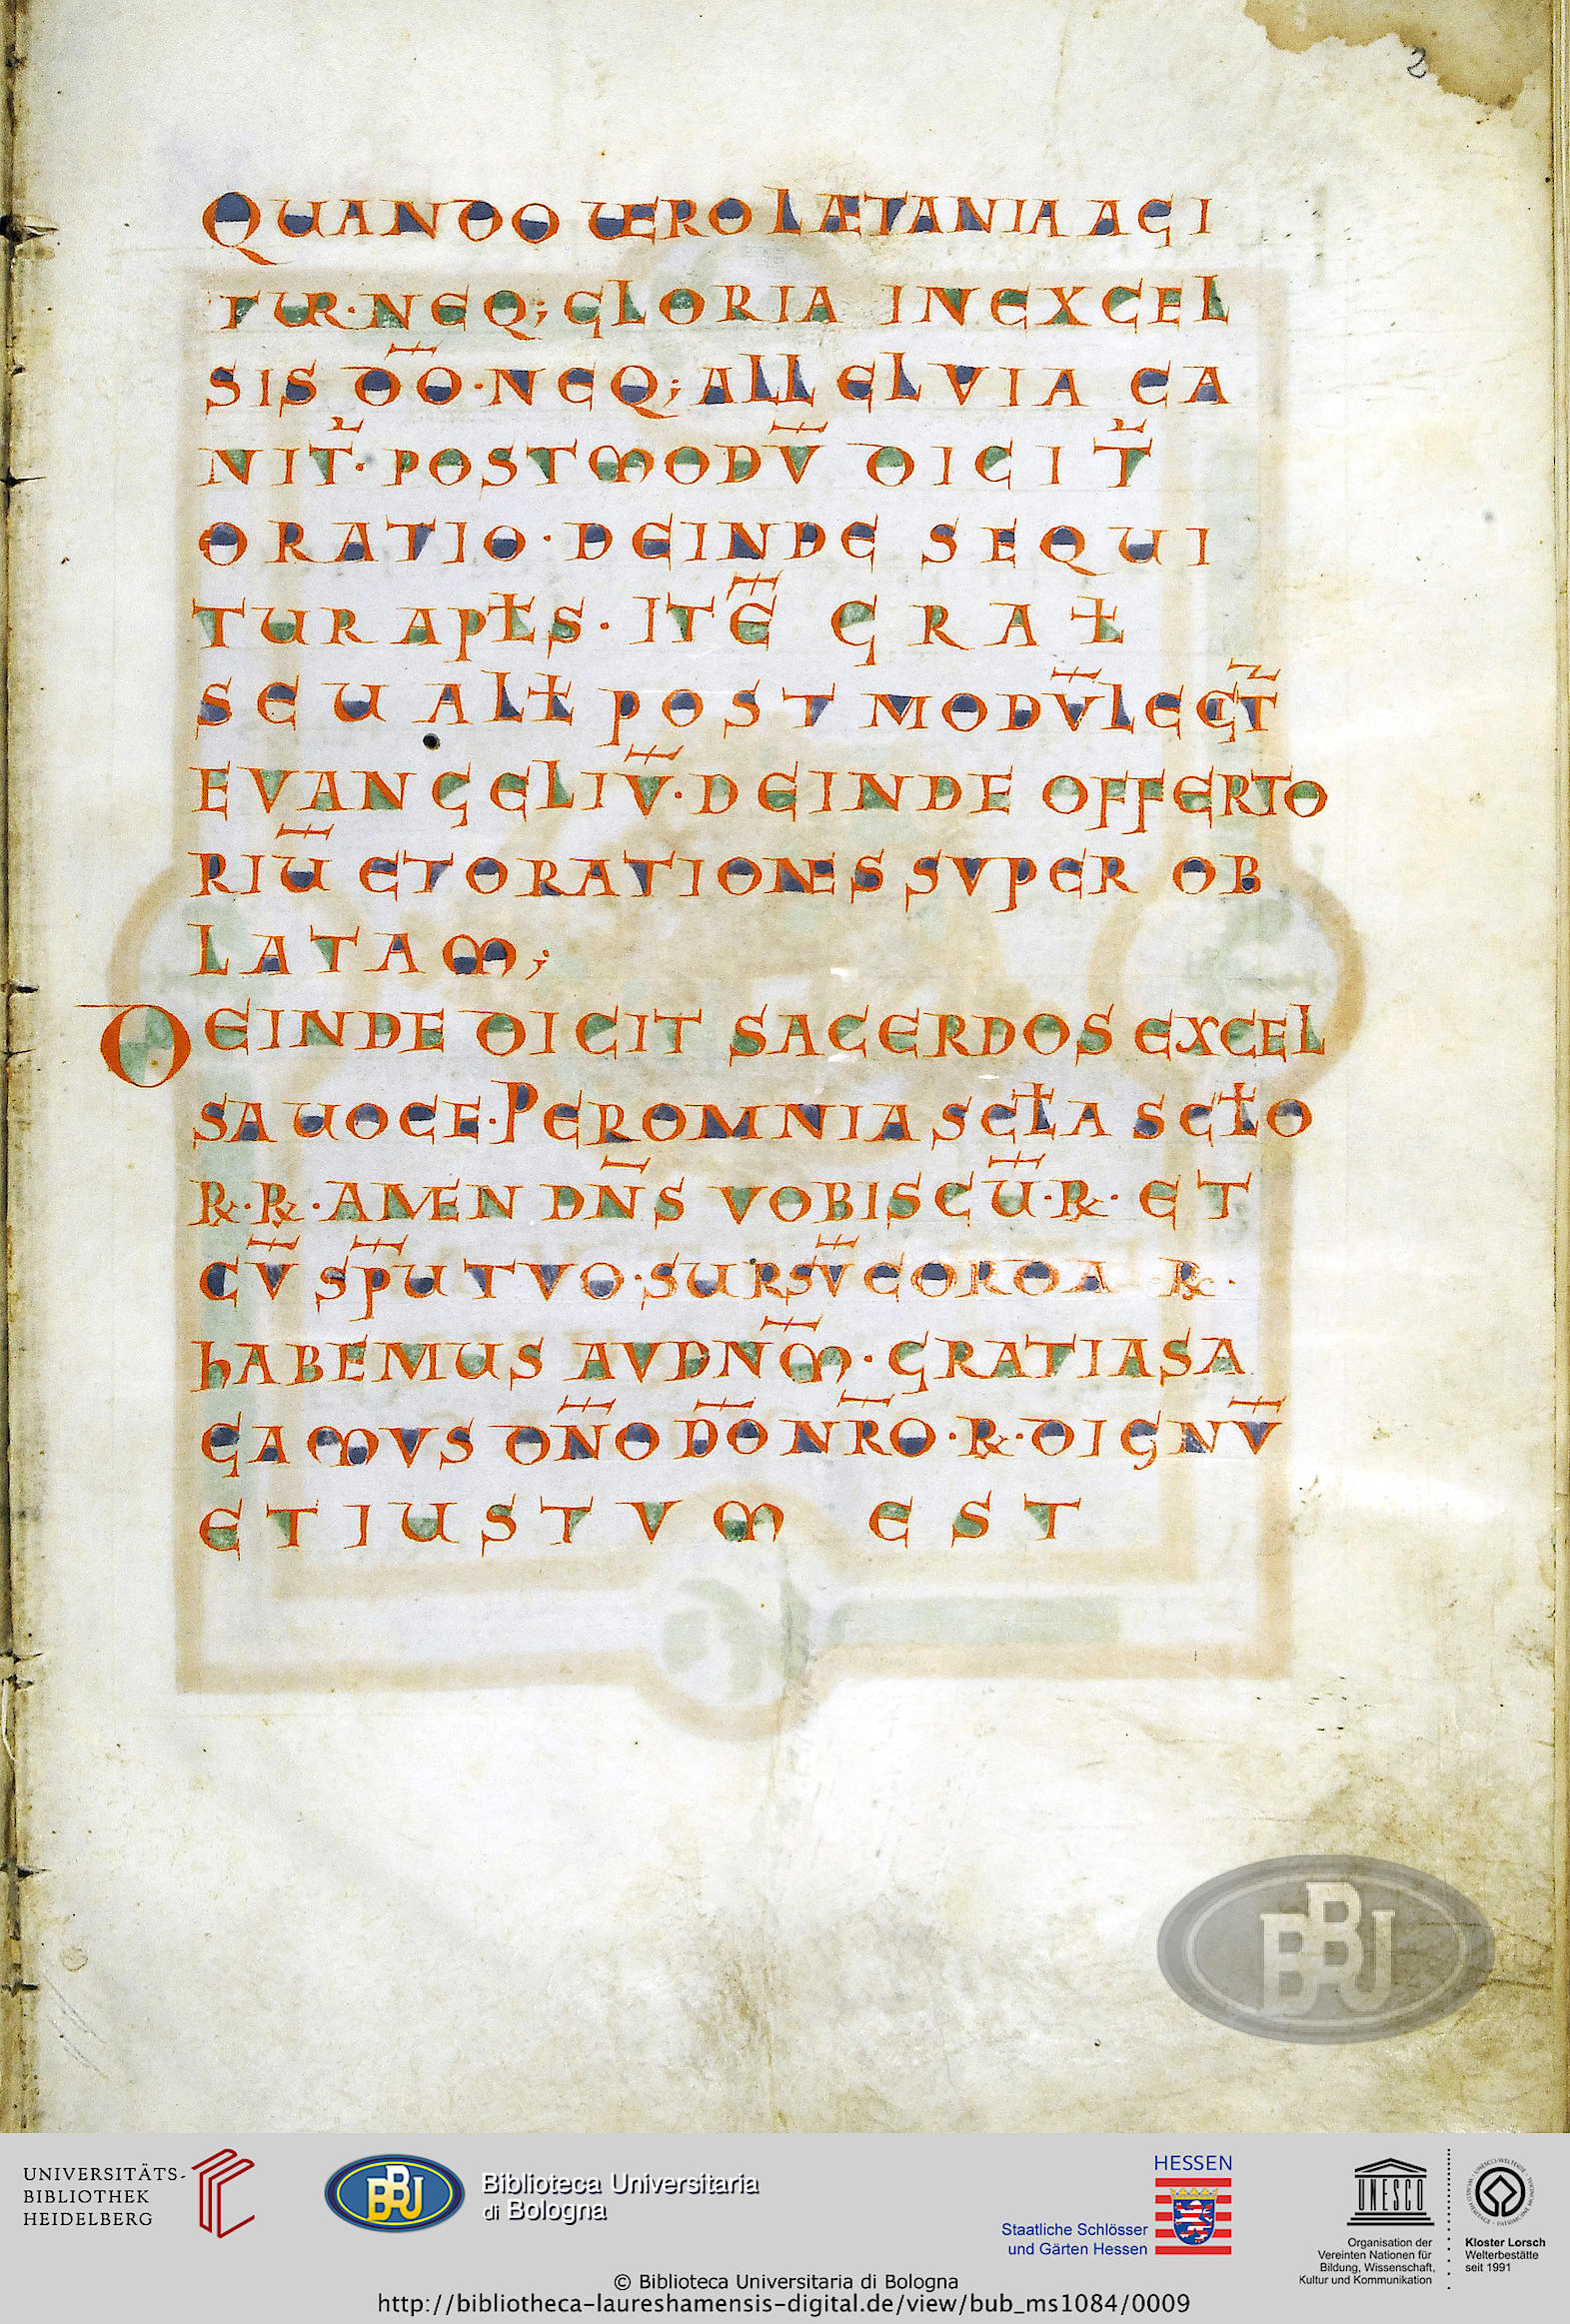 2
QUANDO UERO LAETANIA AGI
TUR·NEQ; GLORIA IN EXCEL
SIS D̅O·NEQ; ALLELVIA CA
NIT̃·POSTMODV̅ DICIT̃
ORATIO·DEINDE SEQUI
TUR APŁS·ITE̅ GRAŁ
SEU ALŁ POSTMODV̅ LEGT̃
EVANGELIV̅·DEINDE OFFERTO
RIU̅ ET ORATIONES SVPER OB
LATAM;
DEINDE DICIT SACERDOS EXCEL
SA UOCE·PER OMNIA SCŁA SCŁO
R̷·R̷·AMEN DN̅S VOBISCU̅·R̷·ET
CV̅ SP̅U TVO·SURSV̅ CORDA R̷·
hABEMUS AVD NM̅·GRATIAS A
GAMVS DN̅O D̅O NR̅O·R̷·DIGNV̅
ET IUSTVM EST
BBU
UNIVERSITÄTS-
BIBLIOTHEK
HEIDELBERG
BBU
Biblioteca Universitaria
di Bologna
HESSEN
Staatliche Schlösser
und Gärten Hessen
UNESCO
Organisation der
Vereinten Nationen für
Bildung, Wissenschaft,
Kultur und Kommunikation
Kloster Lorsch
Welterbestätte
seit 1991
© Biblioteca Universitaria di Bologna
http://bibliotheca-laureshamensis-digital.de/view/bub_ms1084/0009